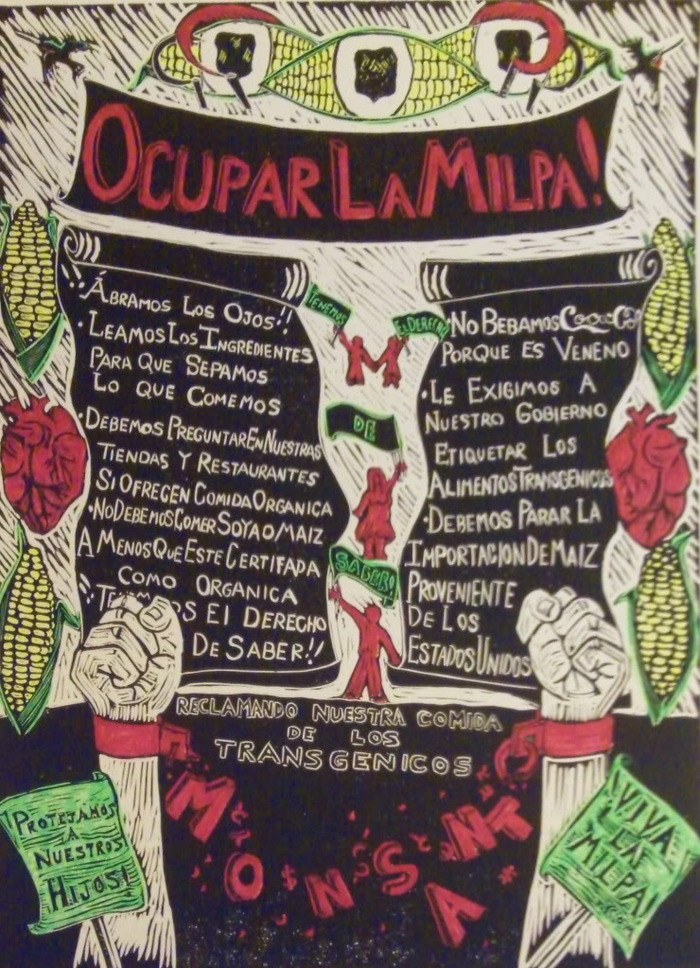 OCUPAR LA MILPA!
ÁBRAMOS LOS OJOS!!
•LEAMOS LOS INGREDIENTES
PARA QUE SEPAMOS
LO QUE COMEMOS
•DEBEMOS PREGUNTAR EN NUESTRAS
TIENDAS Y RESTAURANTES
SI OFRECEN COMIDA ORGANICA
•NO DEBEMOS COMER SOYA O MAIZ
A MENOS QUE ESTE CERTIFADA
COMO ORGANICA
EL DERECHO
DE SABER!!
TENEMOS
EL DERECHO
DE
SABER!
•NO BEBAMOS
PORQUE ES VENENO
•LE EXIGIMOS A
NUESTRO GOBIERNO
ETIQUETAR LOS
ALIMENTOS TRANSGENICOS
•DEBEMOS PARAR LA
IMPORTACION DE MAIZ
PROVENIENTE
DE LOS
ESTADOS UNIDOS
RECLAMANDO NUESTRA COMIDA
DE LOS
TRANSGENICOS
MONSANTO
PROTEJAMOS
A
NUESTROS
HIJOS!
VIVA
LA
MILPA!
.COM